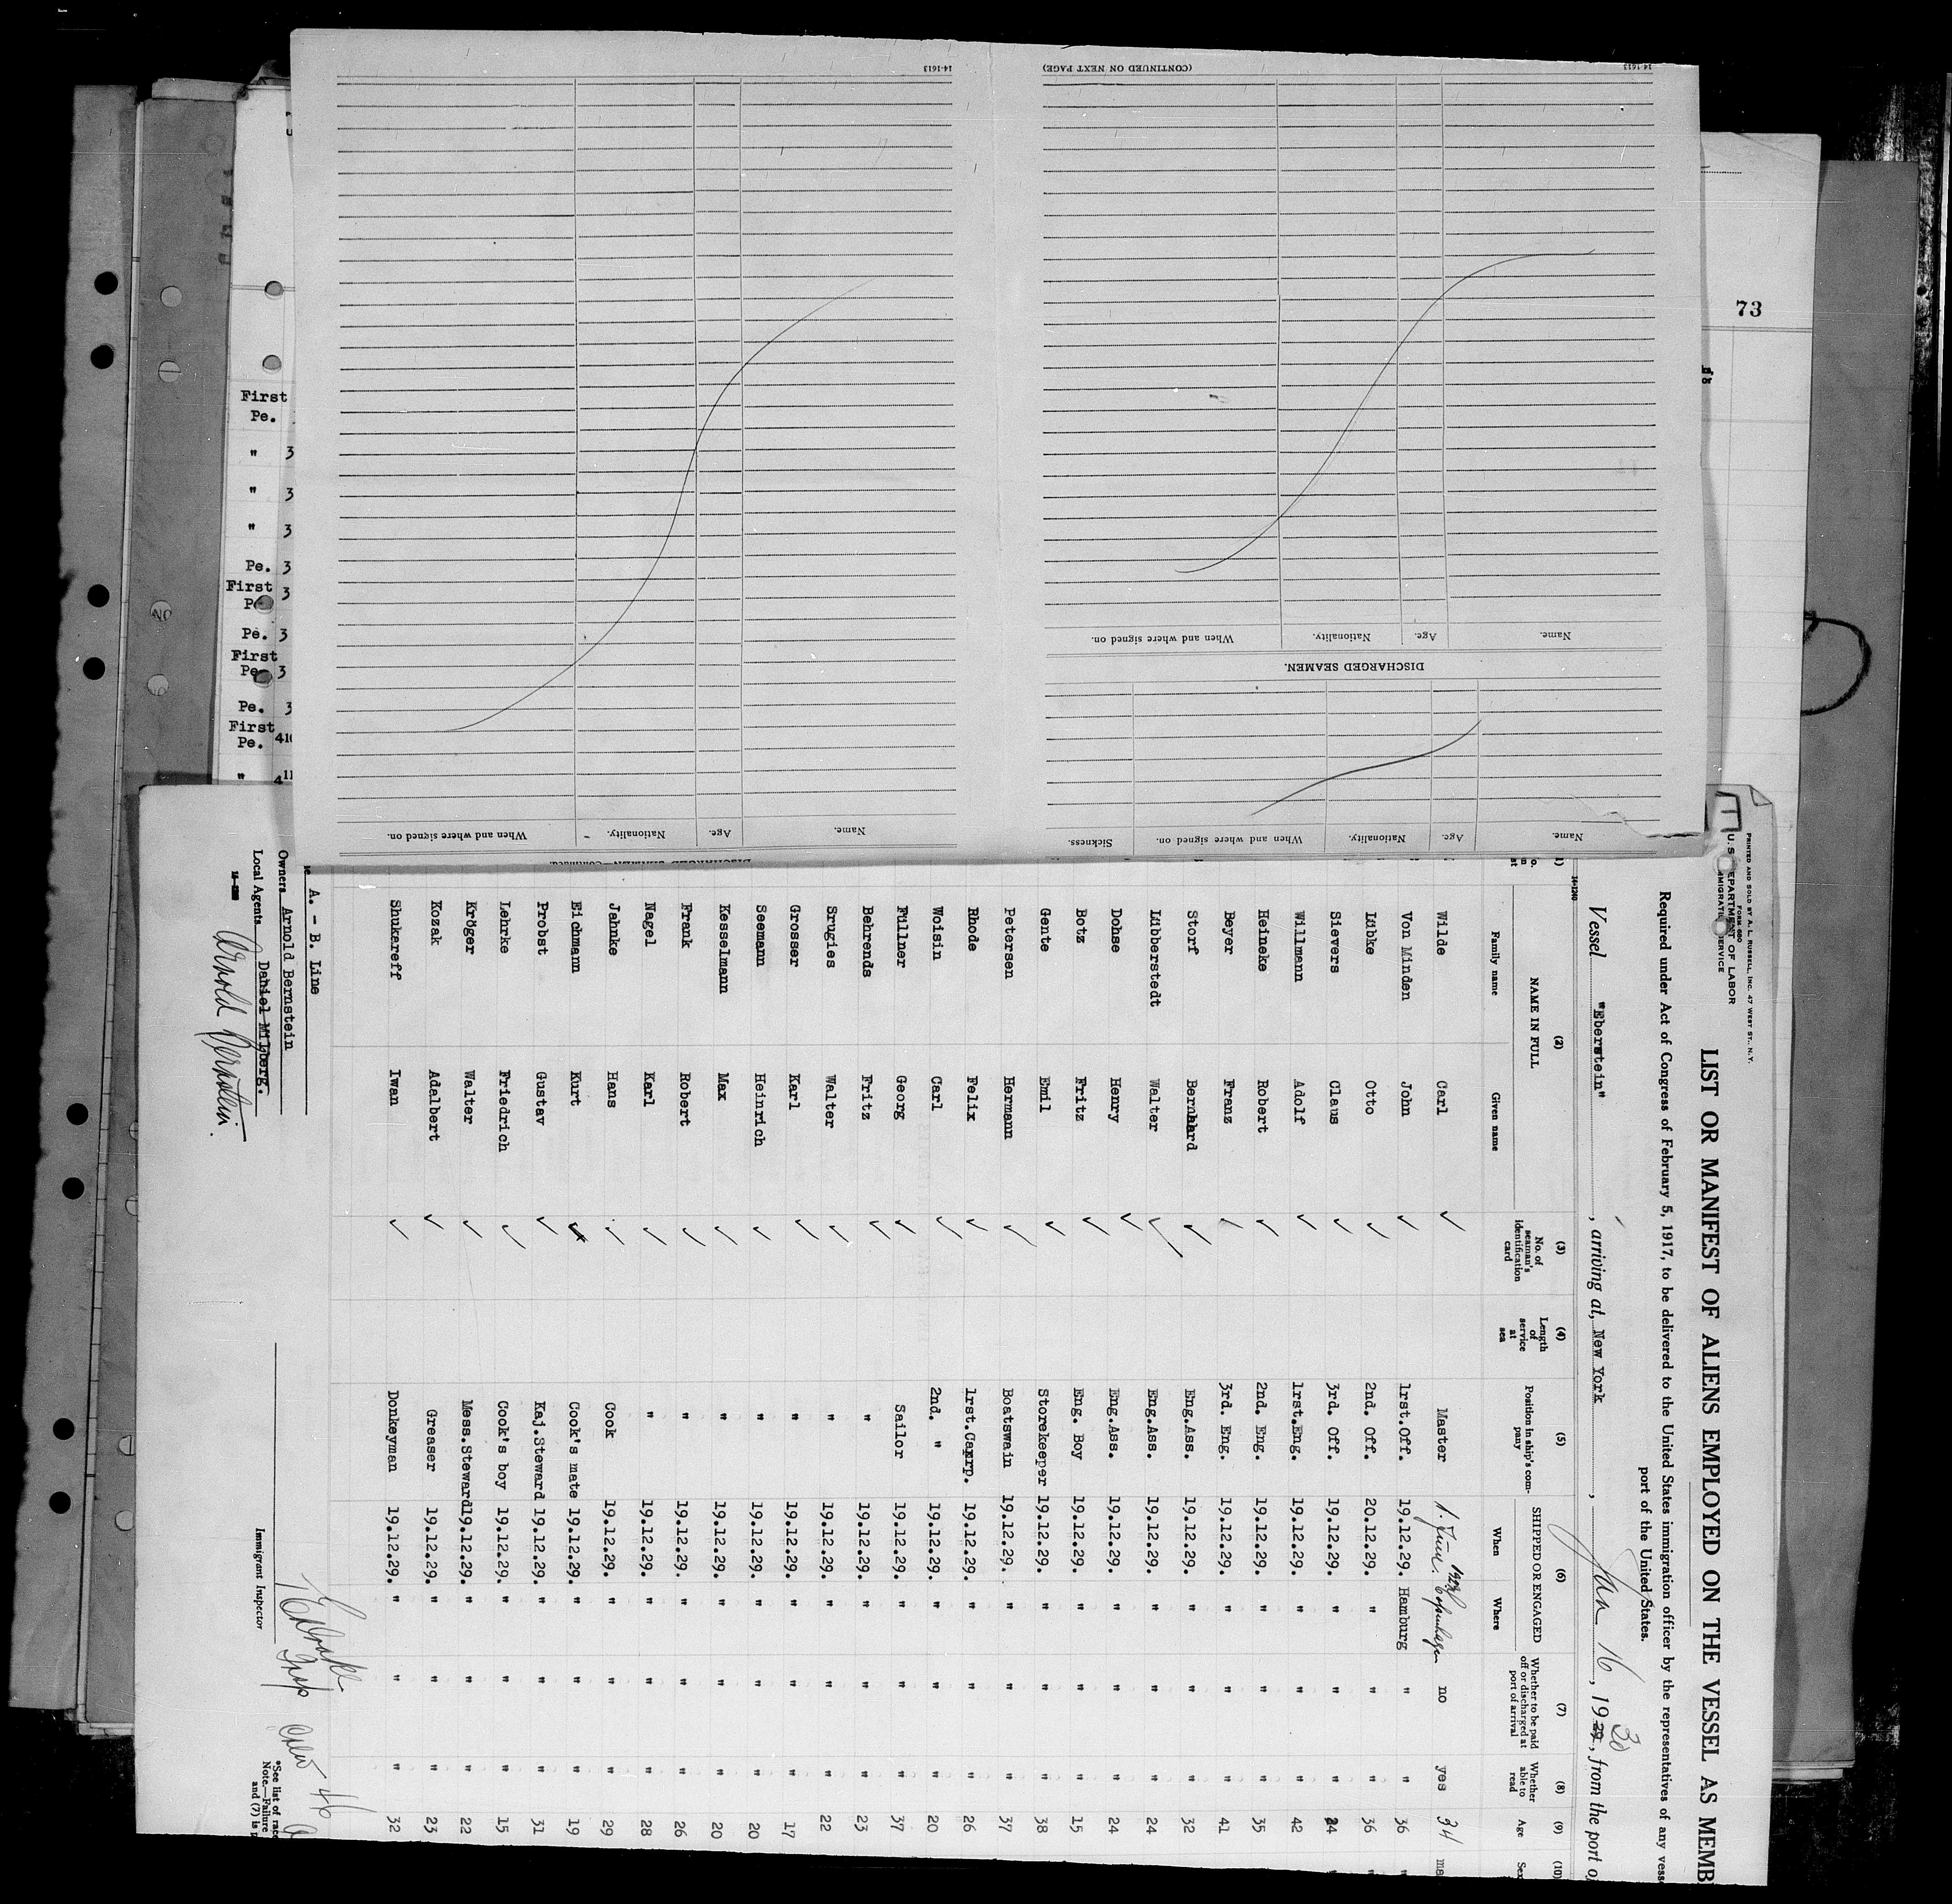 73
First
Pe.
" 3
" 3
" 3
Pe. 3
First 3
Pe
Pe. 3
First
Pe 3
Pe. 3
First
Pe. 41
" 411
14-1613
(CONTINUED ON NEXT PAGE)
14-1613
Name. Age. Nationality. When and where signed on.
DISCHARGED SEAMEN.
Name. Age. Nationality. When and where signed on. Sickness.
DISCHARGED SEAMEN—Continued.
Name. Age. Nationality. When and where signed on.
PRINTED AND SOLD BY A. L. RUSSELL, INC. 47 WEST ST., N.Y.
FORM 680
U.S. DEPARTMENT OF LABOR
IMMIGRATION SERVICE
LIST OR MANIFEST OF ALIENS EMPLOYED ON THE VESSEL AS MEMB
Required under Act of Congress of February 5, 1917, to be delivered to the United States immigration officer by the representatives of any vess
port of the United States.
Vessel "Eberstein", arriving at, New York, Jan 16, 1929 30, from the port o
14-1240
(2) (3) (4) (5) (6) (7) (8) (9) (10)
NAME IN FULL
Family name Given name
No. of seaman's identification card
Length of service at sea
Position in ship's company
SHIPPED OR ENGAGED
When Where
Whether to be paid off or discharged at port of arrival
Whether able to read
Age
Sex
Wilde Carl ✓ Master 1. June Copenhagen no yes 34 ma
Von Minden John ✓ 1rst.Off. 19.12.29. Hamburg " " 36 "
Lübke Otto ✓ 2nd. Off. 20.12.29. " " " 36 "
Sievers Claus ✓ 3rd. Off. 19.12.29. " " " 24 "
Willmann Adolf ✓ 1rst.Eng. 19.12.29. " " " 42
Heineke Robert ✓ 2nd. Eng. 19.12.29. " " " 35
Beyer Franz ✓ 3rd. Eng. 19.12.29. " " " 41
Storf Bernhard ✓ Eng.Ass. 19.12.29. " " " 32
Lübberstedt Walter ✓ Eng.Ass. 19.12.29. " " " 24
Dohse Henry ✓ Eng.Ass. 19.12.29. " " " 24
Botz Fritz ✓ Eng. Boy 19.12.29. " " " 15
Gente Emil ✓ Storekeeper 19.12.29. " " " 38
Petersen Hermann ✓ Boatswain 19.12.29. " " " 37
Rhode Felix ✓ 1rst.Carp. 19.12.29. " " " 26
Woisin Carl ✓ 2nd. " 19.12.29. " " " 20
Füllner Georg ✓ Sailor 19.12.29. " " " 37
Behrends Fritz ✓ " 19.12.29. " " " 23
Srugies Walter ✓ " 19.12.29. " " " 22
Grosser Karl ✓ " 19.12.29. " " " 17
Seemann Heinrich ✓ " 19.12.29. " " " 20
Kesselmann Max ✓ " 19.12.29. " " " 20
Frank Robert ✓ " 19.12.29. " " " 26
Nagel Karl ✓ " 19.12.29. " " " 28
Jahnke Hans ✓ Cook 19.12.29. " " " 29
Eichmann Kurt ✓ Cook's mate 19.12.29. " " " 19
Probst Gustav ✓ Kaj.Steward 19.12.29. " " " 31
Lehrke Friedrich ✓ Cook's boy 19.12.29. " " " 15
Kröger Walter ✓ Mess.Steward 19.12.29. " " " 22
Kozak Adalbert ✓ Greaser 19.12.29. " " " 23
Shukareff Iwan ✓ Donkeyman 19.12.29. " " " 32
A. - B. Line
Owners Arnold Bernstein
Local Agents Dahiel Milberg.
Arnold Bernstein.
Immigrant Inspector
Crew 46
*See list of race
Note.—Failure
and (7) is p